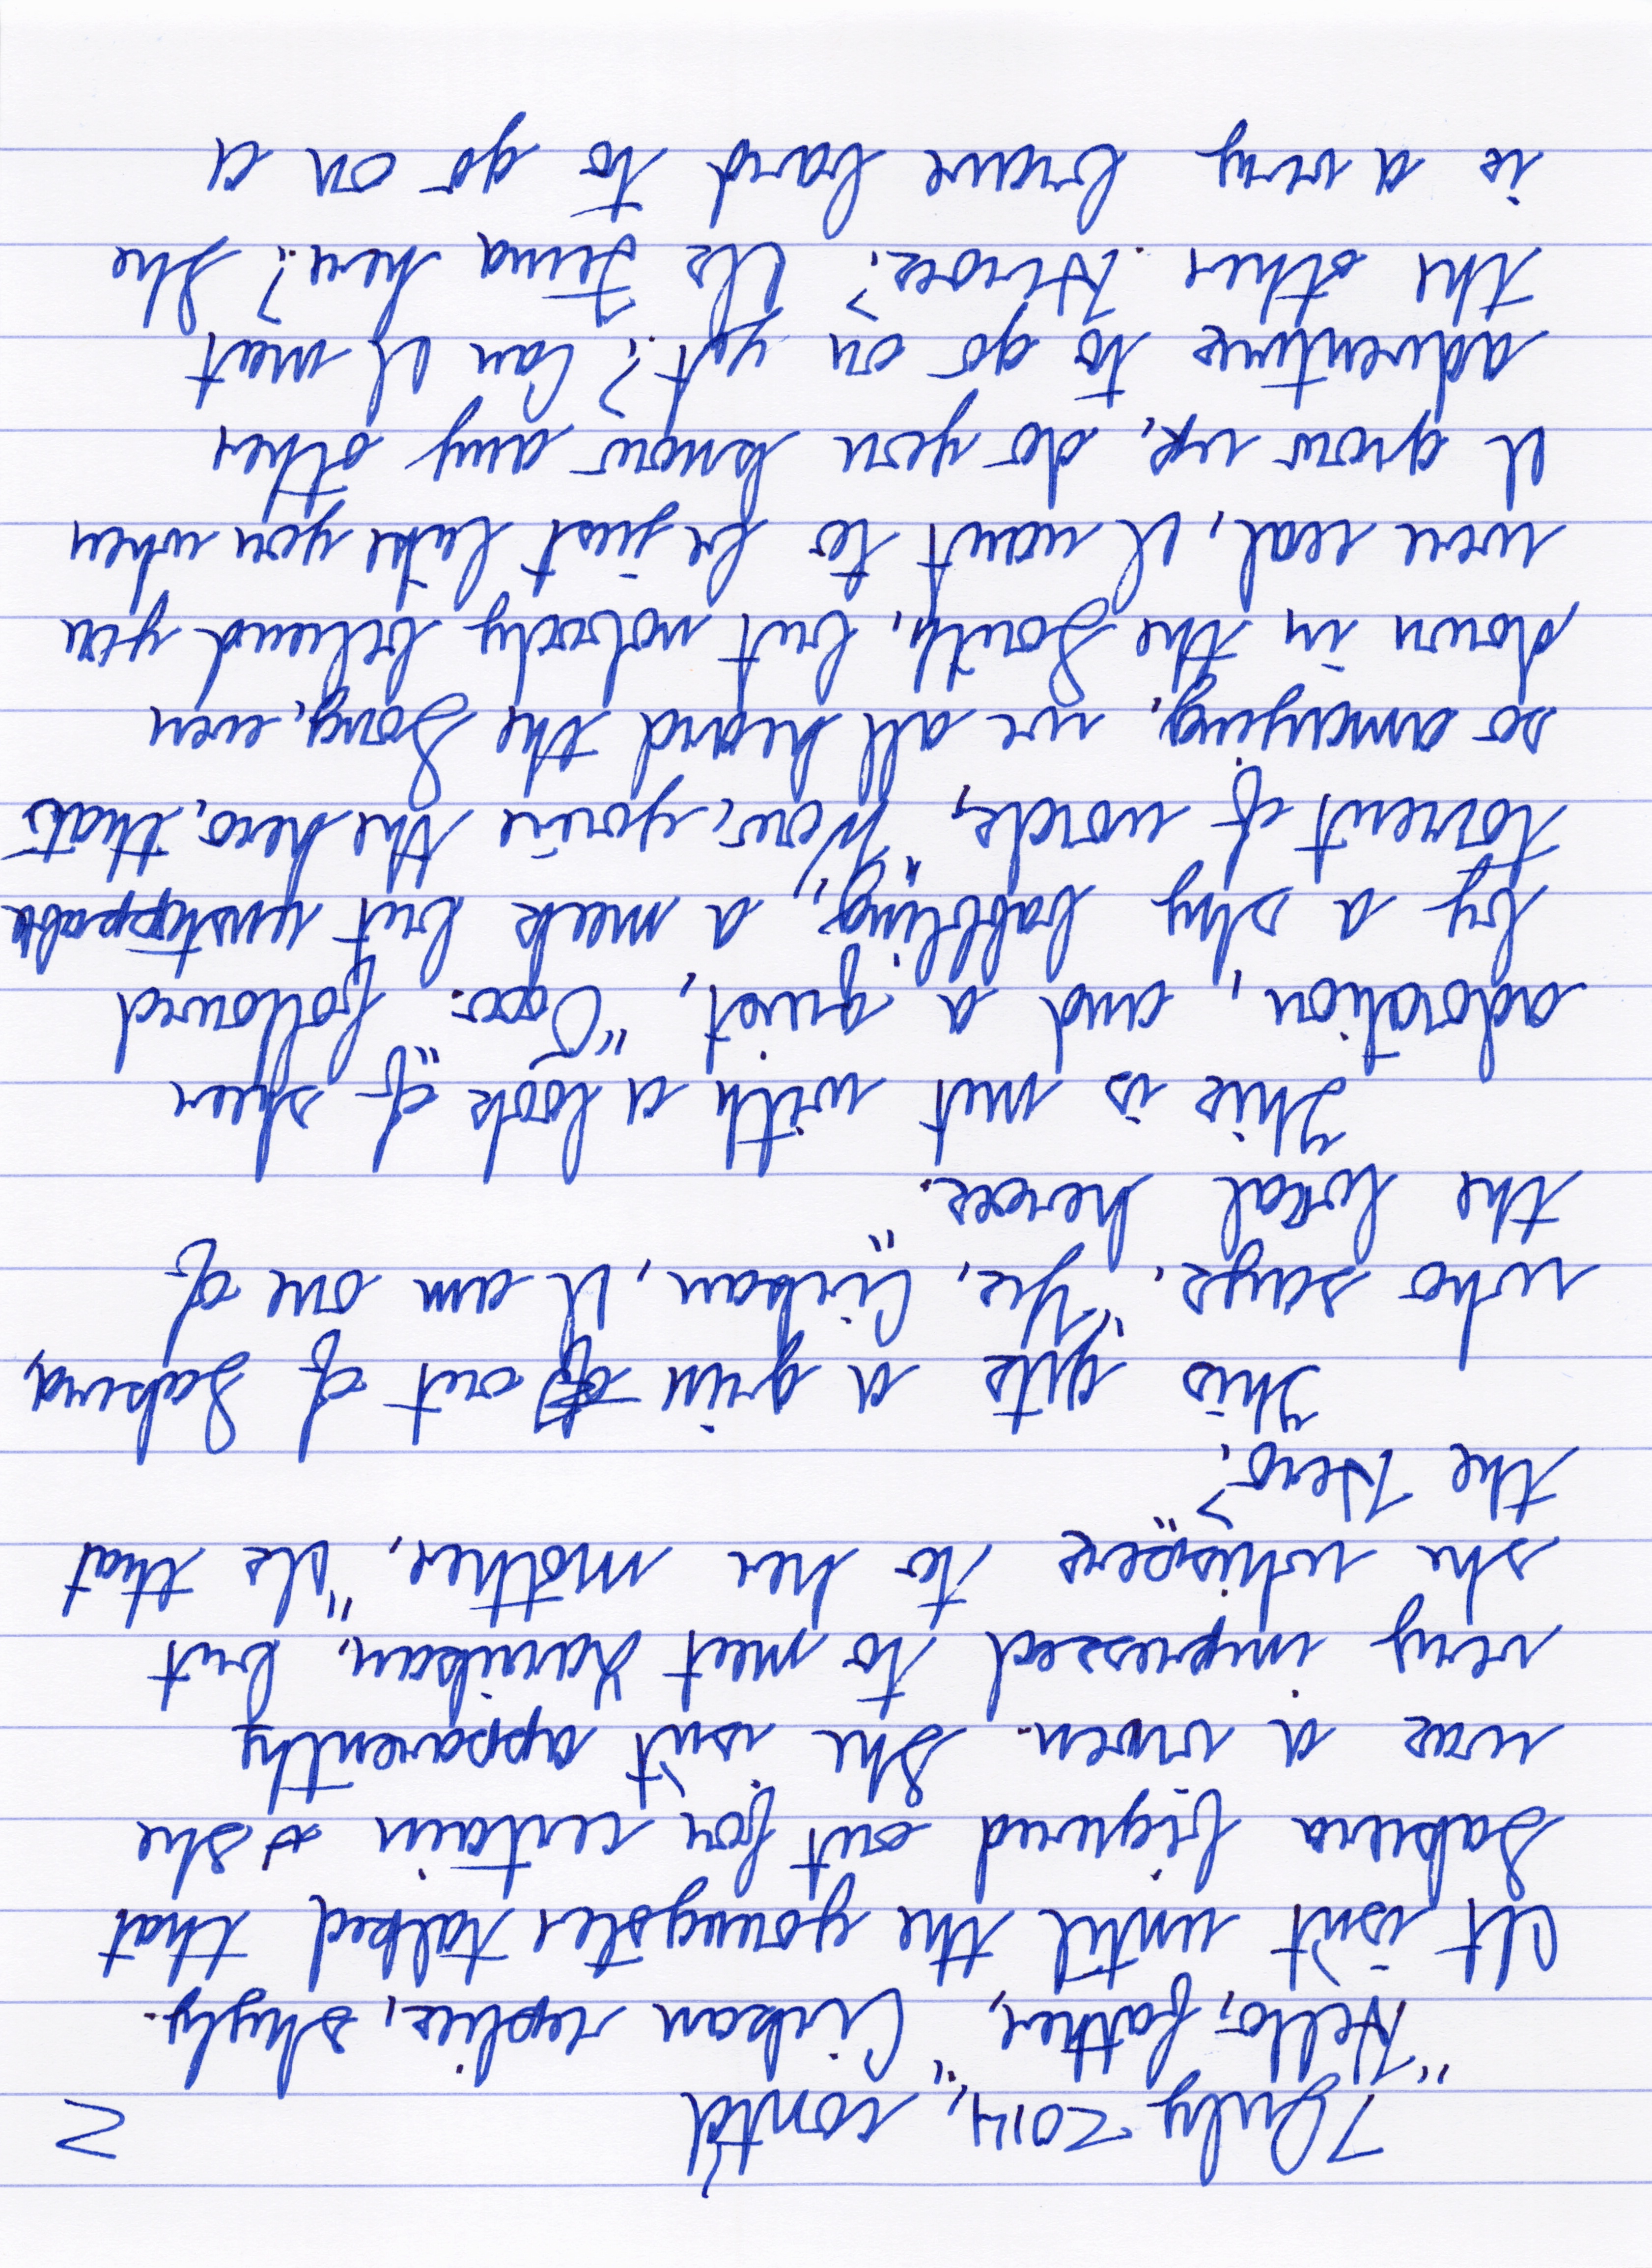 7 July 2014, cont'd 2
"Hello, father," Cirban replies, shyly.
It isn't until the youngster talked that
Sabira figured out for certain she
was a vixen. She isn't apparently
very impressed to meet but
she whispers to her mother, "Is that
the Hero?"
This gets a grin out of Sabira,
who says, "Yes, Cirban, I am one of
the local heroes."
This is met with a look of sheer
adoration, and a quiet, "Ooo." followed
by a shy babbling, a meek but unstoppable
torrent of words, "Wow, you're the hero, that's
so amazing, we all heard the Song, even
down in the South, but nobody believed you
were real, I want to be just like you when
I grow up, do you know any other
adventures to go on yet? Can I meet
the other Heroes? Is here? She
is a very brave bard to go on a